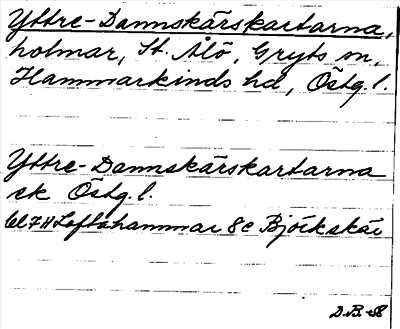 Yttre-Dannskärskartarna,
holmar, St. Ålö, Gryts sn,
Hammarkinds hd, Östg.l.
Yttre-Dannskärskartarna
ek Östg.l.
6L7H Loftahammar 8c Björkskär
D.B.-58